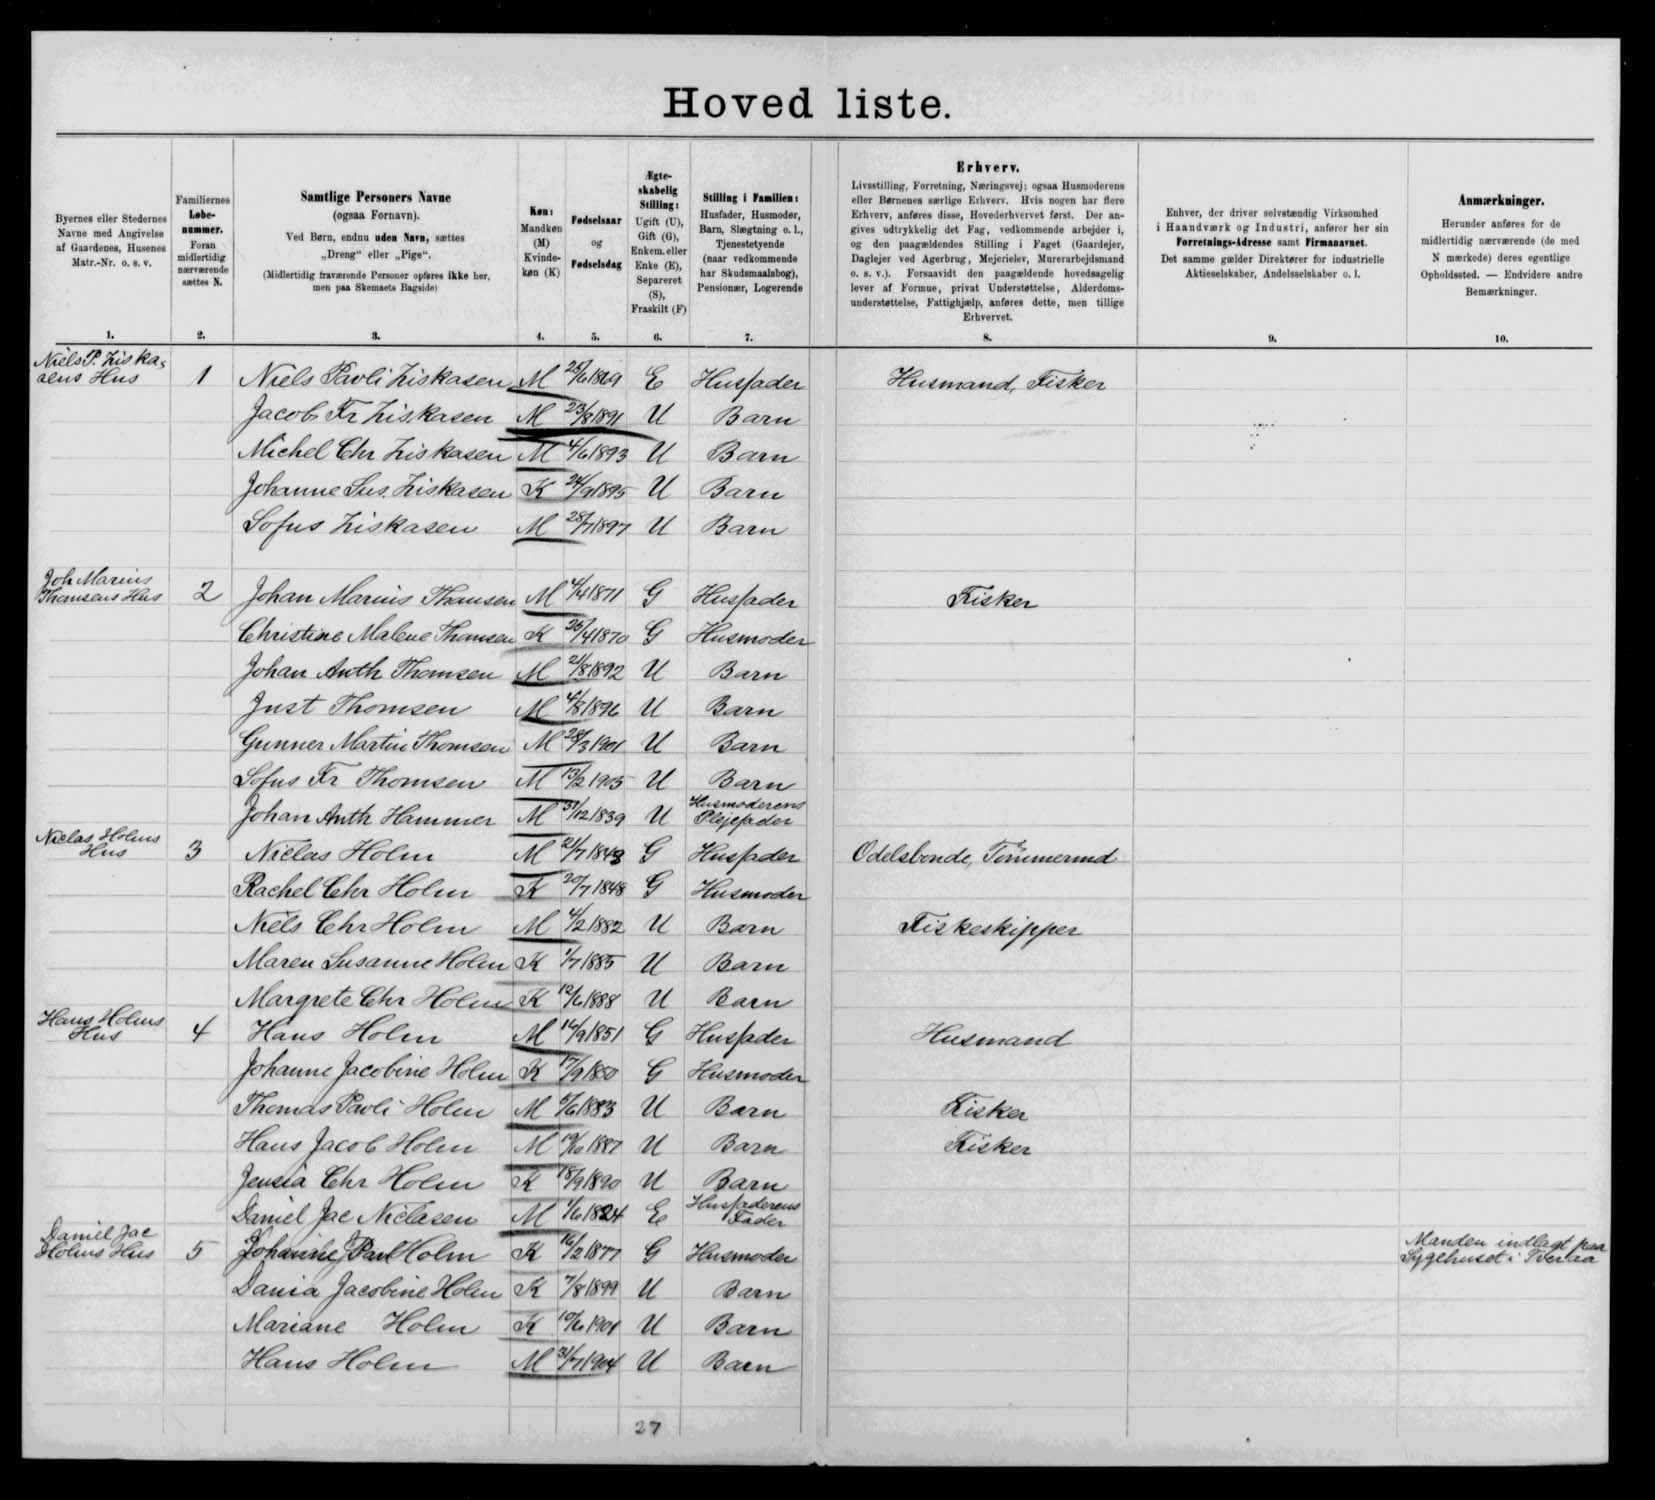 Hoved liste.
Byernes eller Stedernes
Navne med Angivelse
af Gaardenes, Husenes
Matr.-Nr. o. s. v.
1.
Familiernes
Løbe-
nummer.
Foran
midlertidig
nærværende
sættes N.
2.
Samtlige Personers Navne
(ogsaa Fornavn).
Ved Børn, endnu uden Navn, sættes
„Dreng“ eller „Pige“.
(Midlertidig fraværende Personer opføres ikke her,
men paa Skemaets Bagside)
3.
Køn:
Mandkøn
(M)
Kvinde-
køn (K)
4.
Fødselsaar
og
Fødselsdag
5.
Ægte-
skabelig
Stilling:
Ugift (U),
Gift (G),
Enkem. eller
Enke (E),
Separeret
(S),
Fraskilt (F)
6.
Stilling i Familien:
Husfader, Husmoder,
Barn, Slægtning o. l.,
Tjenestetyende
(naar vedkommende
har Skudsmaalsbog),
Pensionær, Logerende
7.
Erhverv.
Livsstilling, Forretning, Næringsvej; ogsaa Husmoderens
eller Børnenes særlige Erhverv. Hvis nogen har flere
Erhverv, anføres disse, Hovederhvervet først. Der an-
gives udtrykkelig det Fag, vedkommende arbejder i,
og den paagældendes Stilling i Faget (Gaardejer,
Daglejer ved Agerbrug, Mejerielev, Murerarbejdsmand
o. s. v.). Forsaavidt den paagældende hovedsagelig
lever af Formue, privat Understøttelse, Alderdoms-
understøttelse, Fattighjælp, anføres dette, men tillige
Erhvervet.
8.
Enhver, der driver selvstændig Virksomhed
i Haandværk og Industri, anfører her sin
Forretnings-Adresse samt Firmanavnet.
Det samme gælder Direktører for industrielle
Aktieselskaber, Andelsselskaber o. l.
9.
Anmærkninger.
Herunder anføres for de
midlertidig nærværende (de med
N mærkede) deres egentlige
Opholdssted. — Endvidere andre
Bemærkninger.
10.
Niels P. Ziska-
sens Hus 1 Niels Pavli Ziskasen M 25/6 1869 E Husfader Husmand, Fisker
Jacob Fr Ziskasen M 23/8 1891 U Barn
Michel Chr Ziskasen M 4/6 1893 U Barn
Johanne Sus. Ziskasen K 24/9 1895 U Barn
Sofus Ziskasen M 28/7 1897 U Barn
Joh Marius
Thomsens Hus 2 Johan Marius Thomsen M 4/4 1871 G Husfader Fisker
Christine Malene Thomsen K 25/4 1870 G Husmoder
Johan Anth Thomsen M 21/8 1892 U Barn
Just Thomsen M 4/8 1896 U Barn
Gunner Martin Thomsen M 28/3 1901 U Barn
Sofus Fr Thomsen M 13/2 1905 U Barn
Johan Anth Hammer M 31/12 1839 U Husmoderens
Plejefader
Niclas Holms
Hus 3 Niclas Holm M 21/7 1843 G Husfader Odelsbonde, Tømmermd
Rachel Chr Holm K 20/7 1848 G Husmoder
Niels Chr Holm M 4/2 1882 U Barn Fiskeskipper
Maren Susanne Holm K 1/7 1885 U Barn
Margrete Chr Holm K 12/6 1888 U Barn
Hans Holms
Hus 4 Hans Holm M 16/9 1851 G Husfader Husmand
Johanne Jacobine Holm K 17/9 1850 G Husmoder
Thomas Pavli Holm M /6 1883 U Barn Fisker
Hans Jacob Holm M 19/10 1887 U Barn Fisker
Jensia Chr Holm K 18/9 1890 U Barn
Daniel Jac Niclasen M 1/6 1824 E Husfaderens
Fader
Daniel Jac
Holms Hus 5 Holm K 16/2 1877 G Husmoder Manden indlagt paa
Sygehuset i Tveraa
Dania Jacobine Holm K 7/8 1899 U Barn
Mariane Holm K 10/6 1901 U Barn
Hans Holm M 31/7 1904 U Barn
27